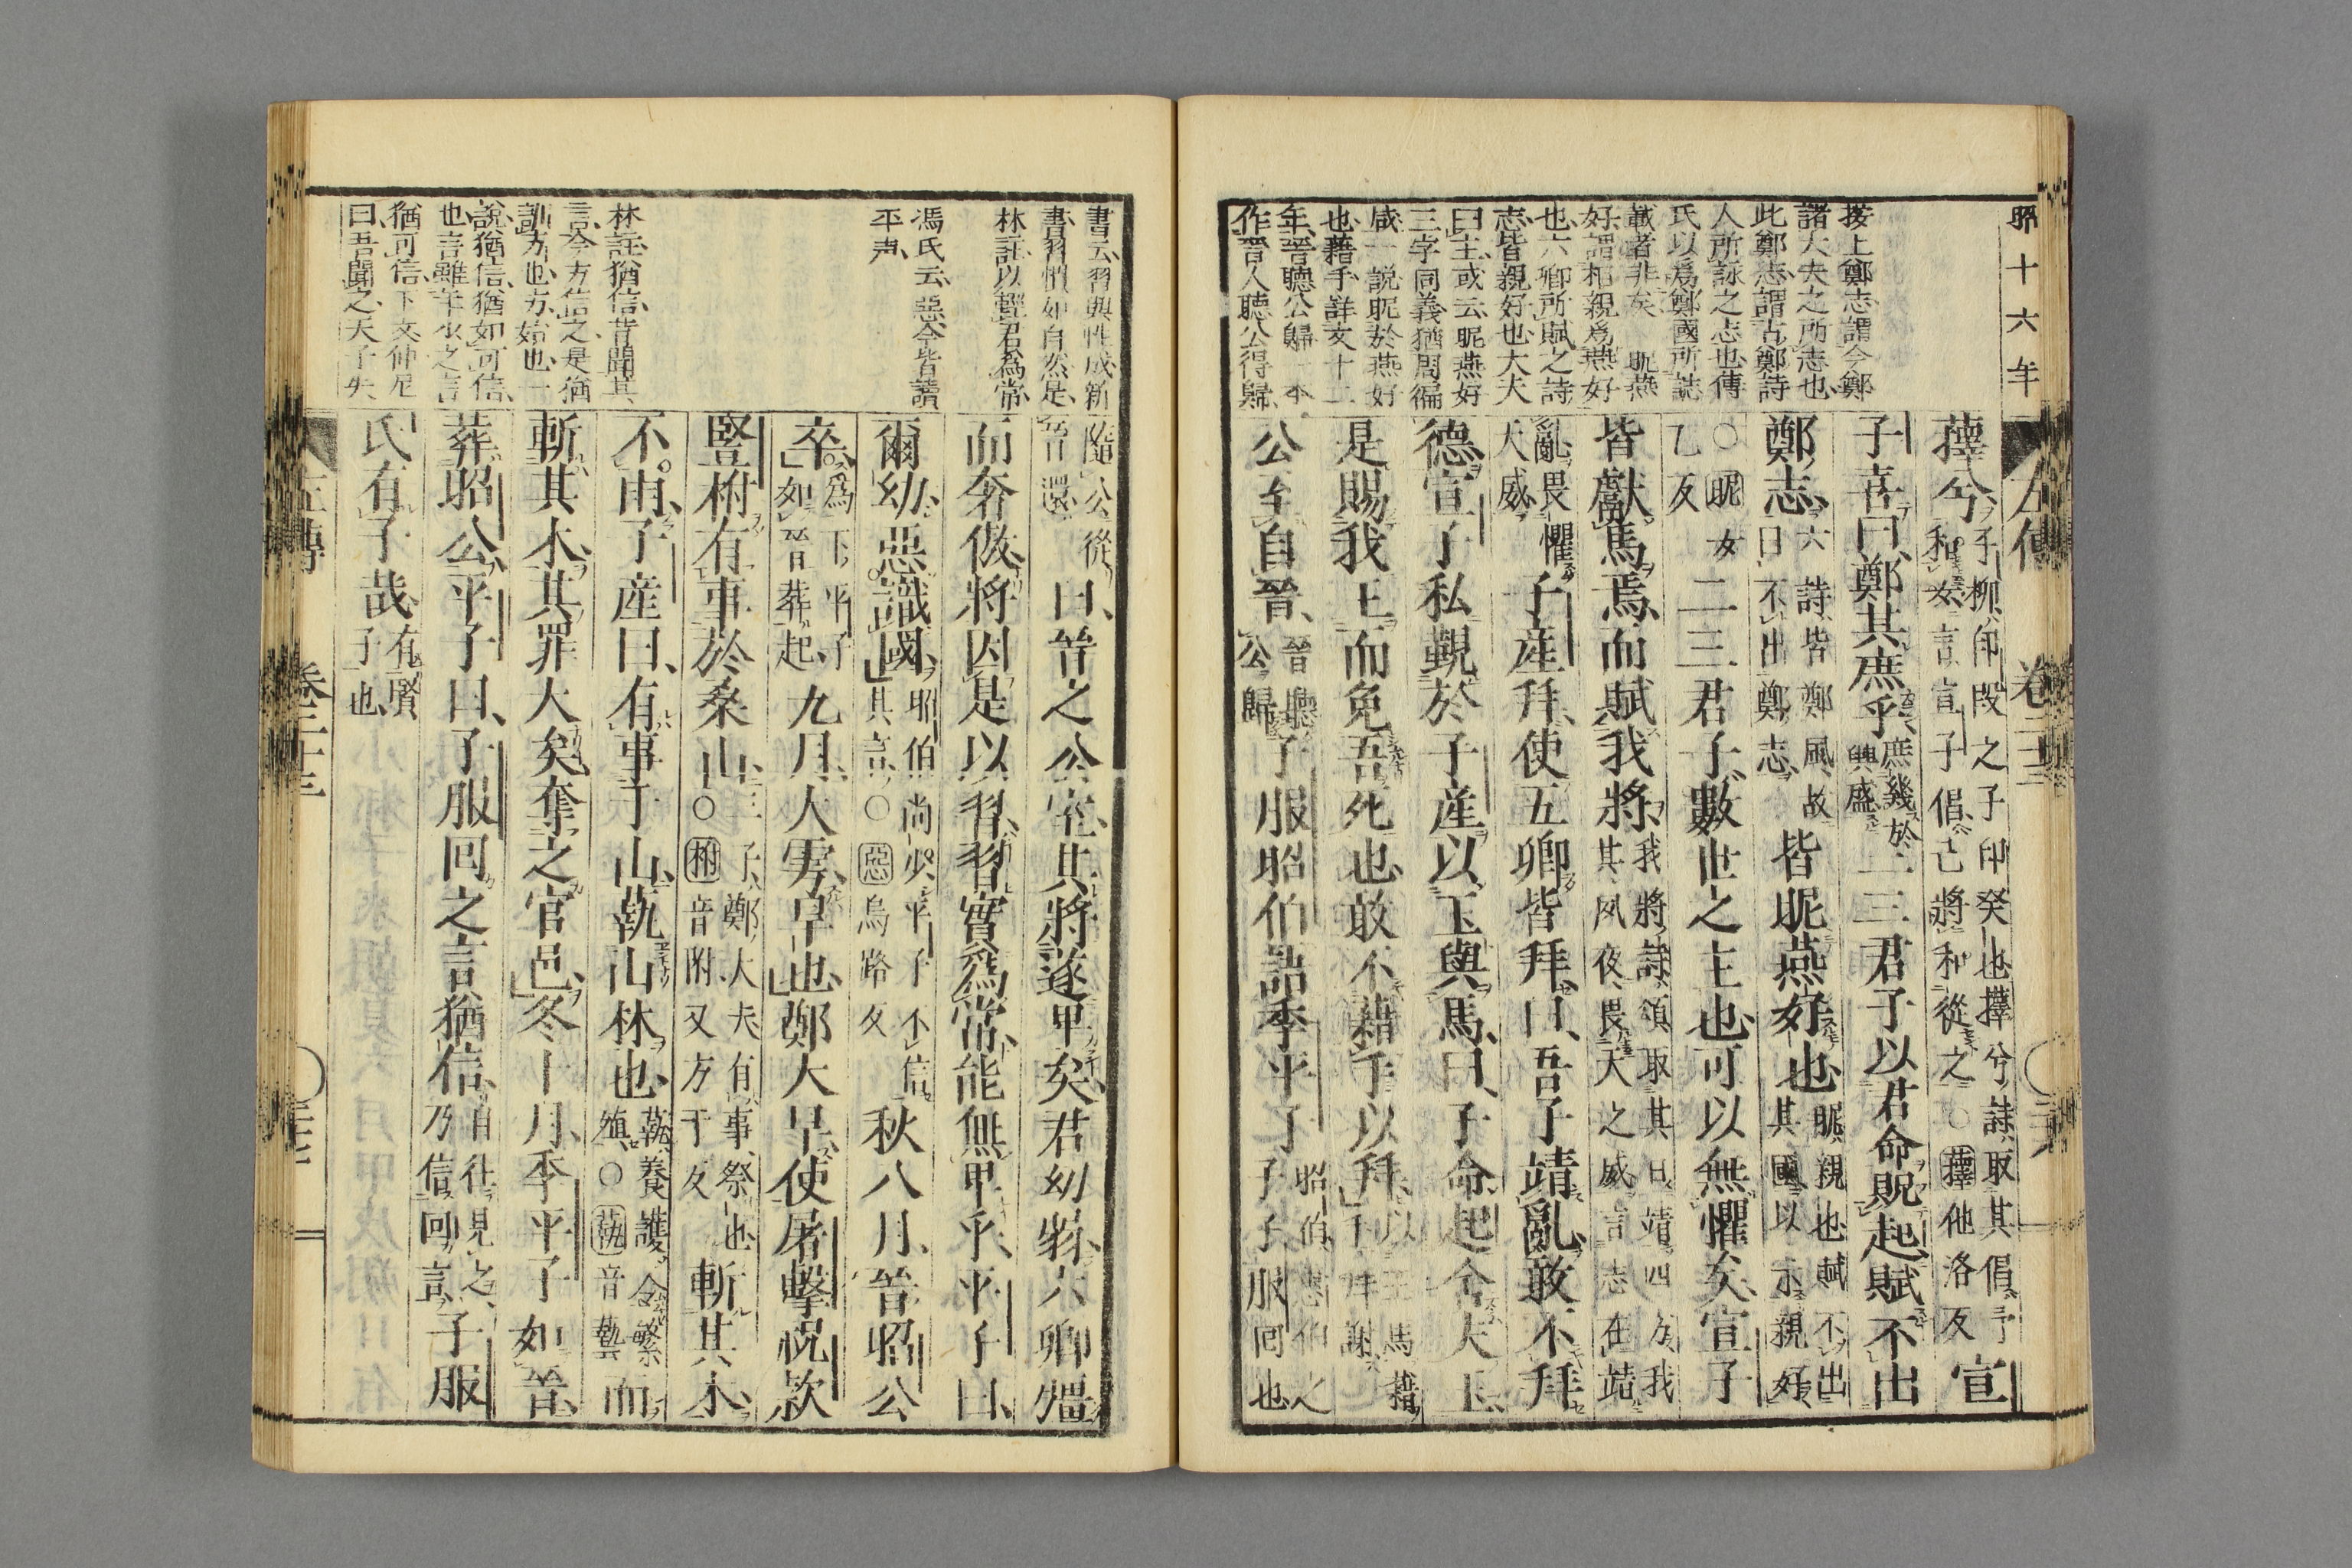 昭十六年
左傳 卷二十三
按上鄭志謂今鄭
諸大夫之所志也
此鄭志謂古鄭詩
人所詠之志也傳
氏以爲鄭國所誌
載者非矣 昵燕
好謂相親爲燕好
也六卿所賦之詩
志皆親好也大夫
曰主或云昵燕好
三字同義猶周徧
咸一說昵於燕好
也藉手詳文十二
年晉聽公歸一本
作晉人聽公得歸
蘀兮子柳印段之子印癸也蘀兮詩取其倡予和女言宣子倡己將和從之○蘀他洛反宣
子喜曰鄭其庶乎庶幾於興盛二三君子以君命貺起賦不出
鄭志六詩皆鄭風故曰不出鄭志皆昵燕好也昵親也賦不出其國以示親好
○昵女乙反二三君子數世之主也可以無懼矣宣子
皆獻馬焉而賦我將我將詩頌取其日靖四方我其夙夜畏天之威言志在靖
亂畏懼天威子產拜使五卿皆拜曰吾子靖亂敢不拜
德宣子私覲於子產以玉與馬曰子命起舍夫玉
是賜我玉而免吾死也敢不藉手以拜以玉馬藉手拜謝
公至自晉晉聽公歸子服昭伯語季平子昭伯惠伯之子子服回也
書云習與性成新
書習慣如自然是
林註以輕君爲常
馮氏云惡今皆讀
平声
林註猶信昔聞其
言今方信之是猶
訓方也方始也一
說猶信猶如可信
也言雖年少之言
猶可信下文仲尼
曰吾聞之天子失
隨公從晉還曰晉之公室其將遂卑矣君幼弱六卿彊
而奢傲將因是以習習實爲常能無卑乎平子曰
爾幼惡識國昭伯尚少平子不信其言○惡烏路反秋八月晉昭公
卒爲下平子如晉葬起九月大雩旱也鄭大旱使屠擊祝款
豎柎有事於桑山三子鄭大夫有事祭也○柎音附又方于反斬其木
不雨子產曰有事于山蓺山林也蓺養護令繁殖○蓺音藝而
斬其木其罪大矣奪之官邑冬十月季平子如晉
葬昭公平子曰子服回之言猶信自往見之乃信回言子服
氏有子哉有賢子也
左傳 卷二十三